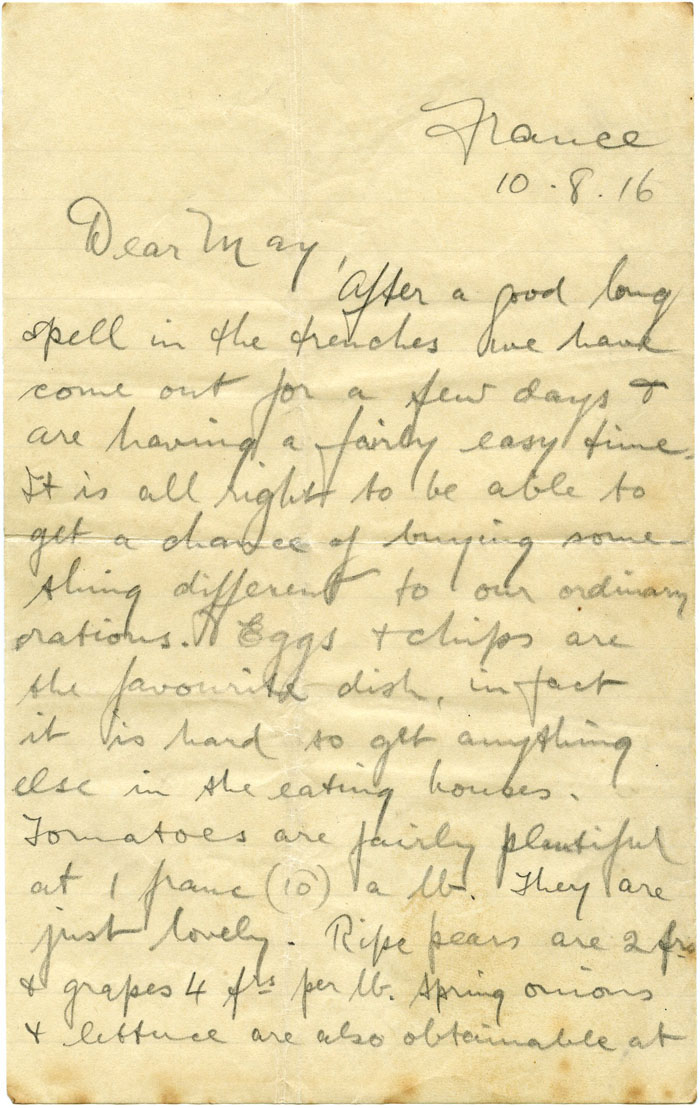 France
10.8.16
Dear May,
After a good long
spell in the trenches we have
come out for a few days &
are having a fairly easy time.
It is all right to be able to
get a chance of buying some-
thing different to our ordinary
rations. Eggs & chips are
the favourite dish, in fact
it is hard to get anything
else in the eating houses.
Tomatoes are fairly plentiful
at 1 franc (10) a lb. They are
just lovely. Ripe pears are 2 frs
& grapes 4 frs per lb. Spring onions
& lettuce are also obtainable at